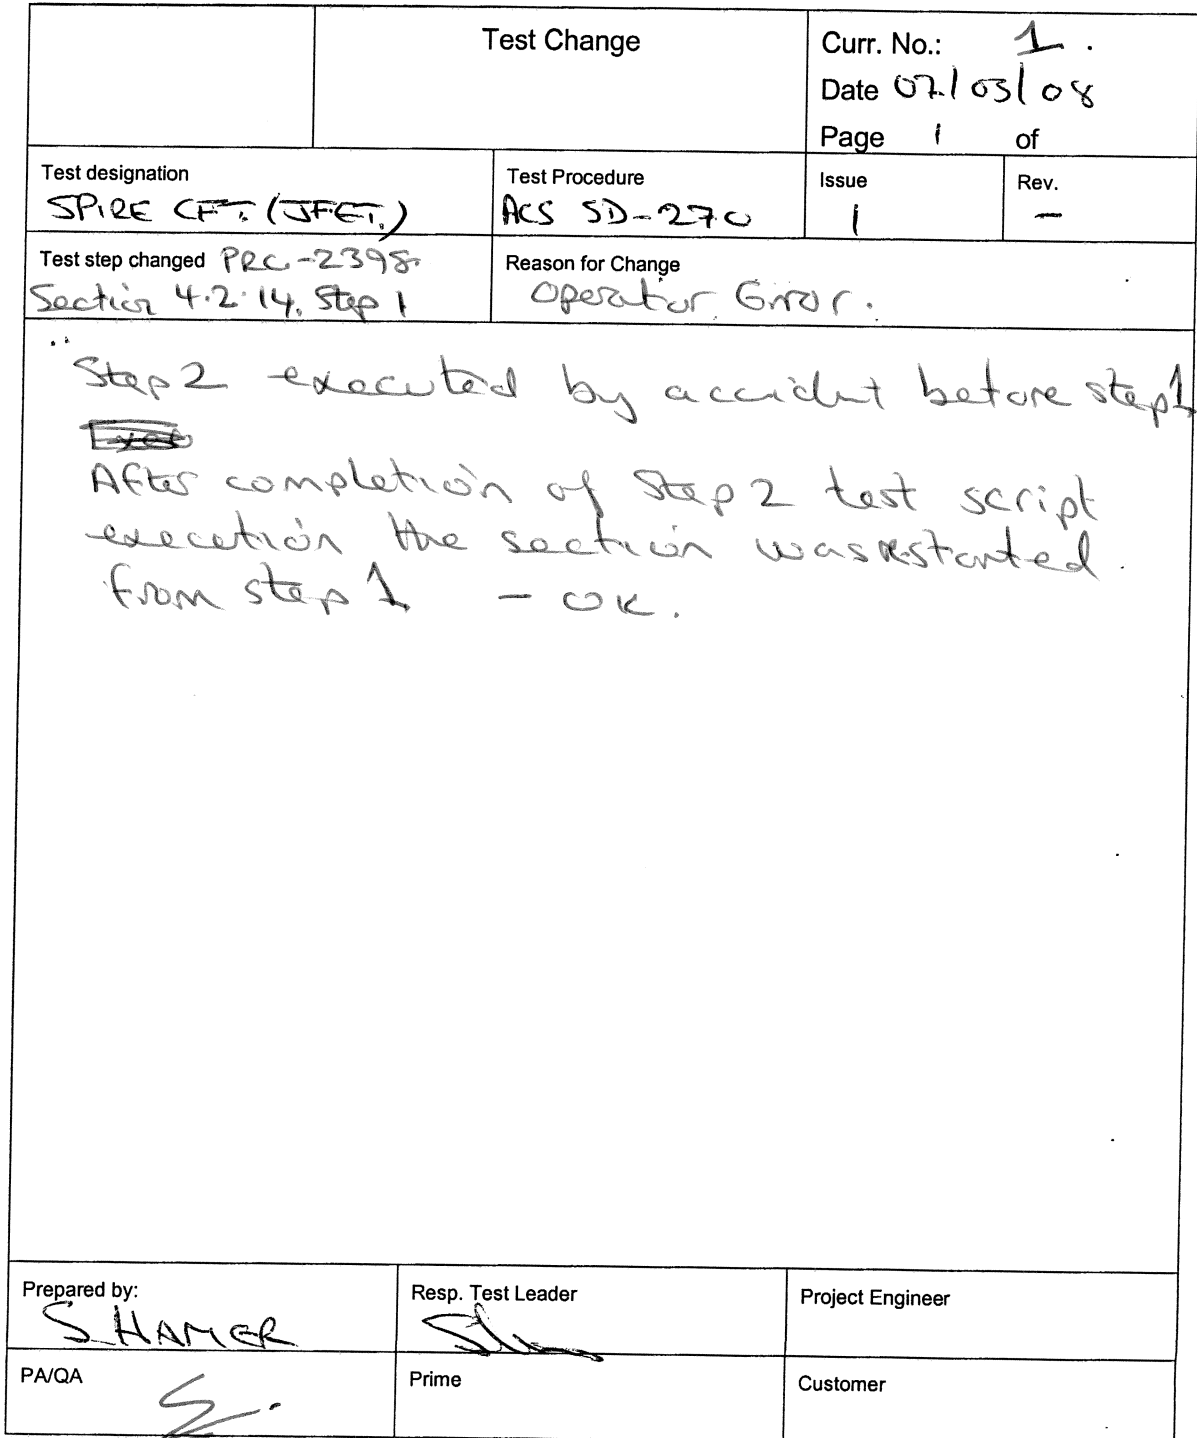 Test Change
Curr. No.: 1.
Date 07/03/08
Page 1 of
Test designation
SPIRE CFT. (JFET.)
Test Procedure
ACS SD-270
Issue
1
Rev.
-
Test step changed PRC-2398.
Section 4.2.14. Step 1
Reason for Change
Operator Error.
Step 2 executed by accident before step 1
After completion of Step 2 test script
execution the section was restarted.
from step 1 - OK.
Prepared by:
S HAMER
Resp. Test Leader
Project Engineer
PA/QA
Prime
Customer